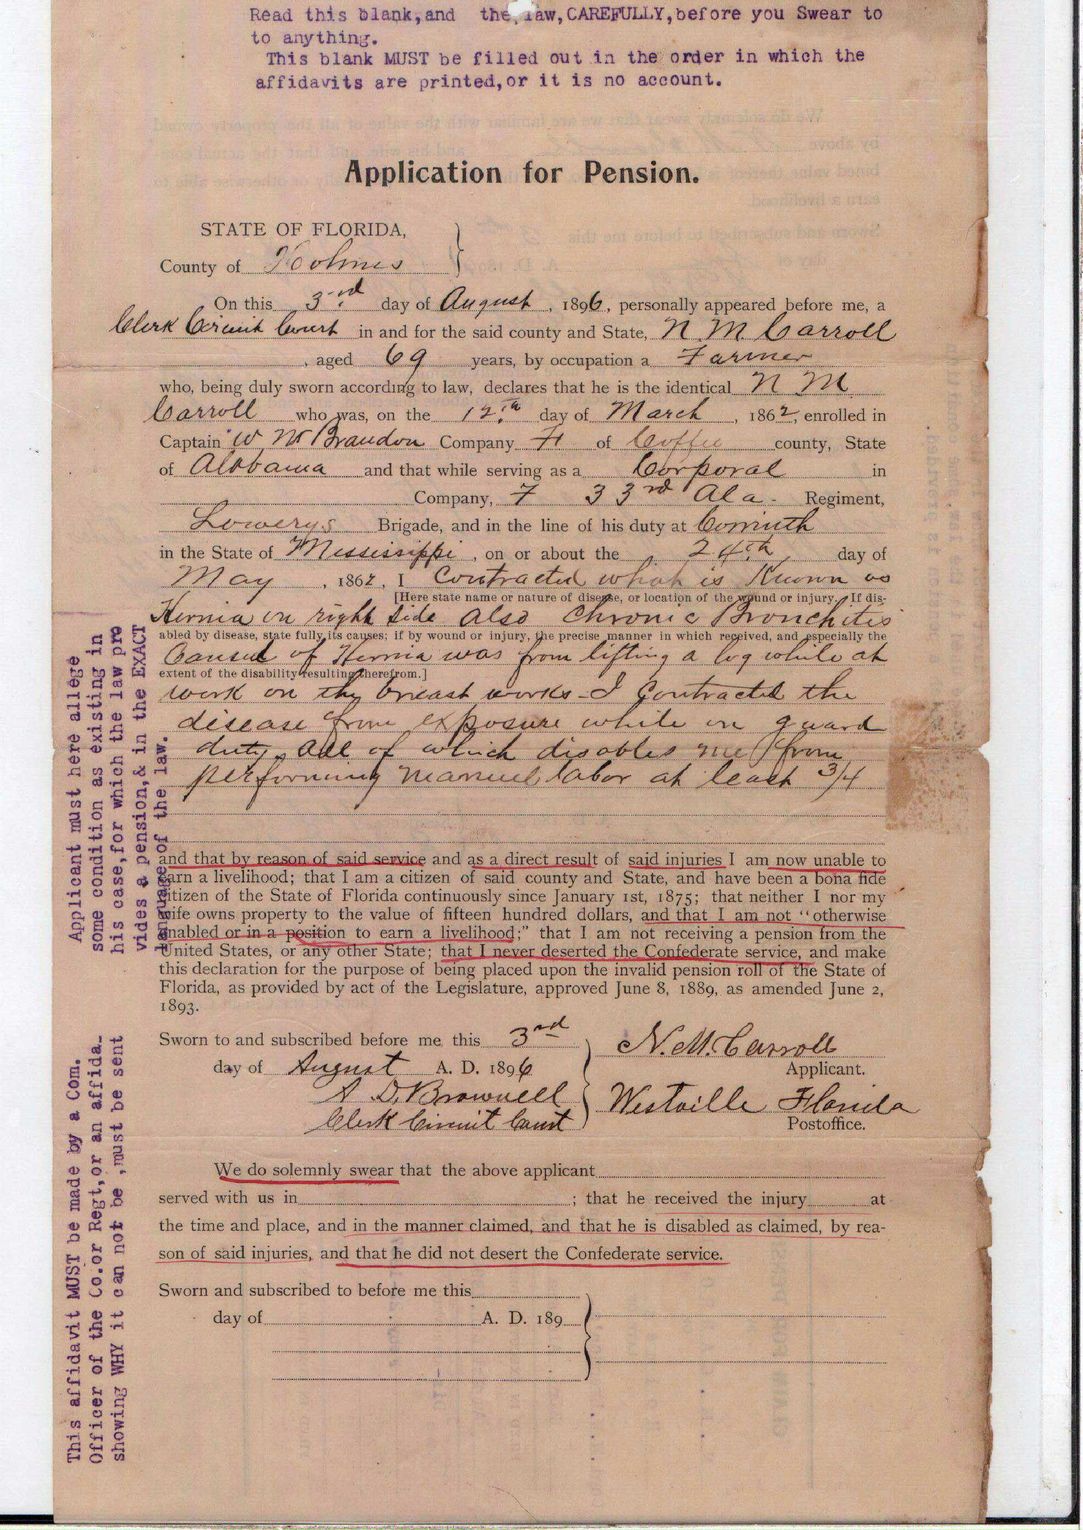 Read this blank,and the law,CAREFULLY,before you Swear to
to anything.
This blank MUST be filled out in the order in which the
affidavits are printed,or it is no account.
Application for Pension.
STATE OF FLORIDA,
County of Holmes
On this 3rd day of August, 1896, personally appeared before me, a
Clerk Circuit Court in and for the said county and State, N. M. Carroll
, aged 69 years, by occupation a Farmer
who, being duly sworn according to law, declares that he is the identical N M
Carroll who was, on the 12th day of March, 1862, enrolled in
Captain W N Brandon Company F of Coffee county, State
of Alabama and that while serving as a Corporal in
Company, F 33rd Ala. Regiment,
Lowerys Brigade, and in the line of his duty at Corinth
in the State of Mississippi, on or about the 24th day of
May, 1862, I Contracted what is Known as
[Here state name or nature of disease, or location of the wound or injury. If dis-
Hernia on right side also Chronic Bronchites
abled by disease, state fully its causes; if by wound or injury, the precise manner in which received, and especially the
Caused of Hernia was from lifting a log while at
extent of the disability resulting therefrom.]
work on the breast works - I Contracted the
disease from exposure while on guard
duty, all of which disables me from
performing manuel labor at least 3/4
and that by reason of said service and as a direct result of said injuries I am now unable to
earn a livelihood; that I am a citizen of said county and State, and have been a bona fide
citizen of the State of Florida continuously since January 1st, 1875; that neither I nor my
wife owns property to the value of fifteen hundred dollars, and that I am not "otherwise
enabled or in a position to earn a livelihood;" that I am not receiving a pension from the
United States, or any other State; that I never deserted the Confederate service, and make
this declaration for the purpose of being placed upon the invalid pension roll of the State of
Florida, as provided by act of the Legislature, approved June 8, 1889, as amended June 2,
1893.
Sworn to and subscribed before me this 3rd
day of August A. D. 1896
A. D. Brownell
Clerk Circuit Court
N. M. Carroll
Applicant.
Westville Florida
Postoffice.
We do solemnly swear that the above applicant
served with us in ; that he received the injury at
the time and place, and in the manner claimed, and that he is disabled as claimed, by rea-
son of said injuries, and that he did not desert the Confederate service.
Sworn and subscribed to before me this
day of A. D. 189
Applicant must here allege
some condition as existing in
his case,for which the law pro
vides a pension,& in the EXACT
language of the law.
This affidavit MUST be made by a Com.
Officer of the Co.or Regt,or an affida-
showing WHY it can not be ,must be sent